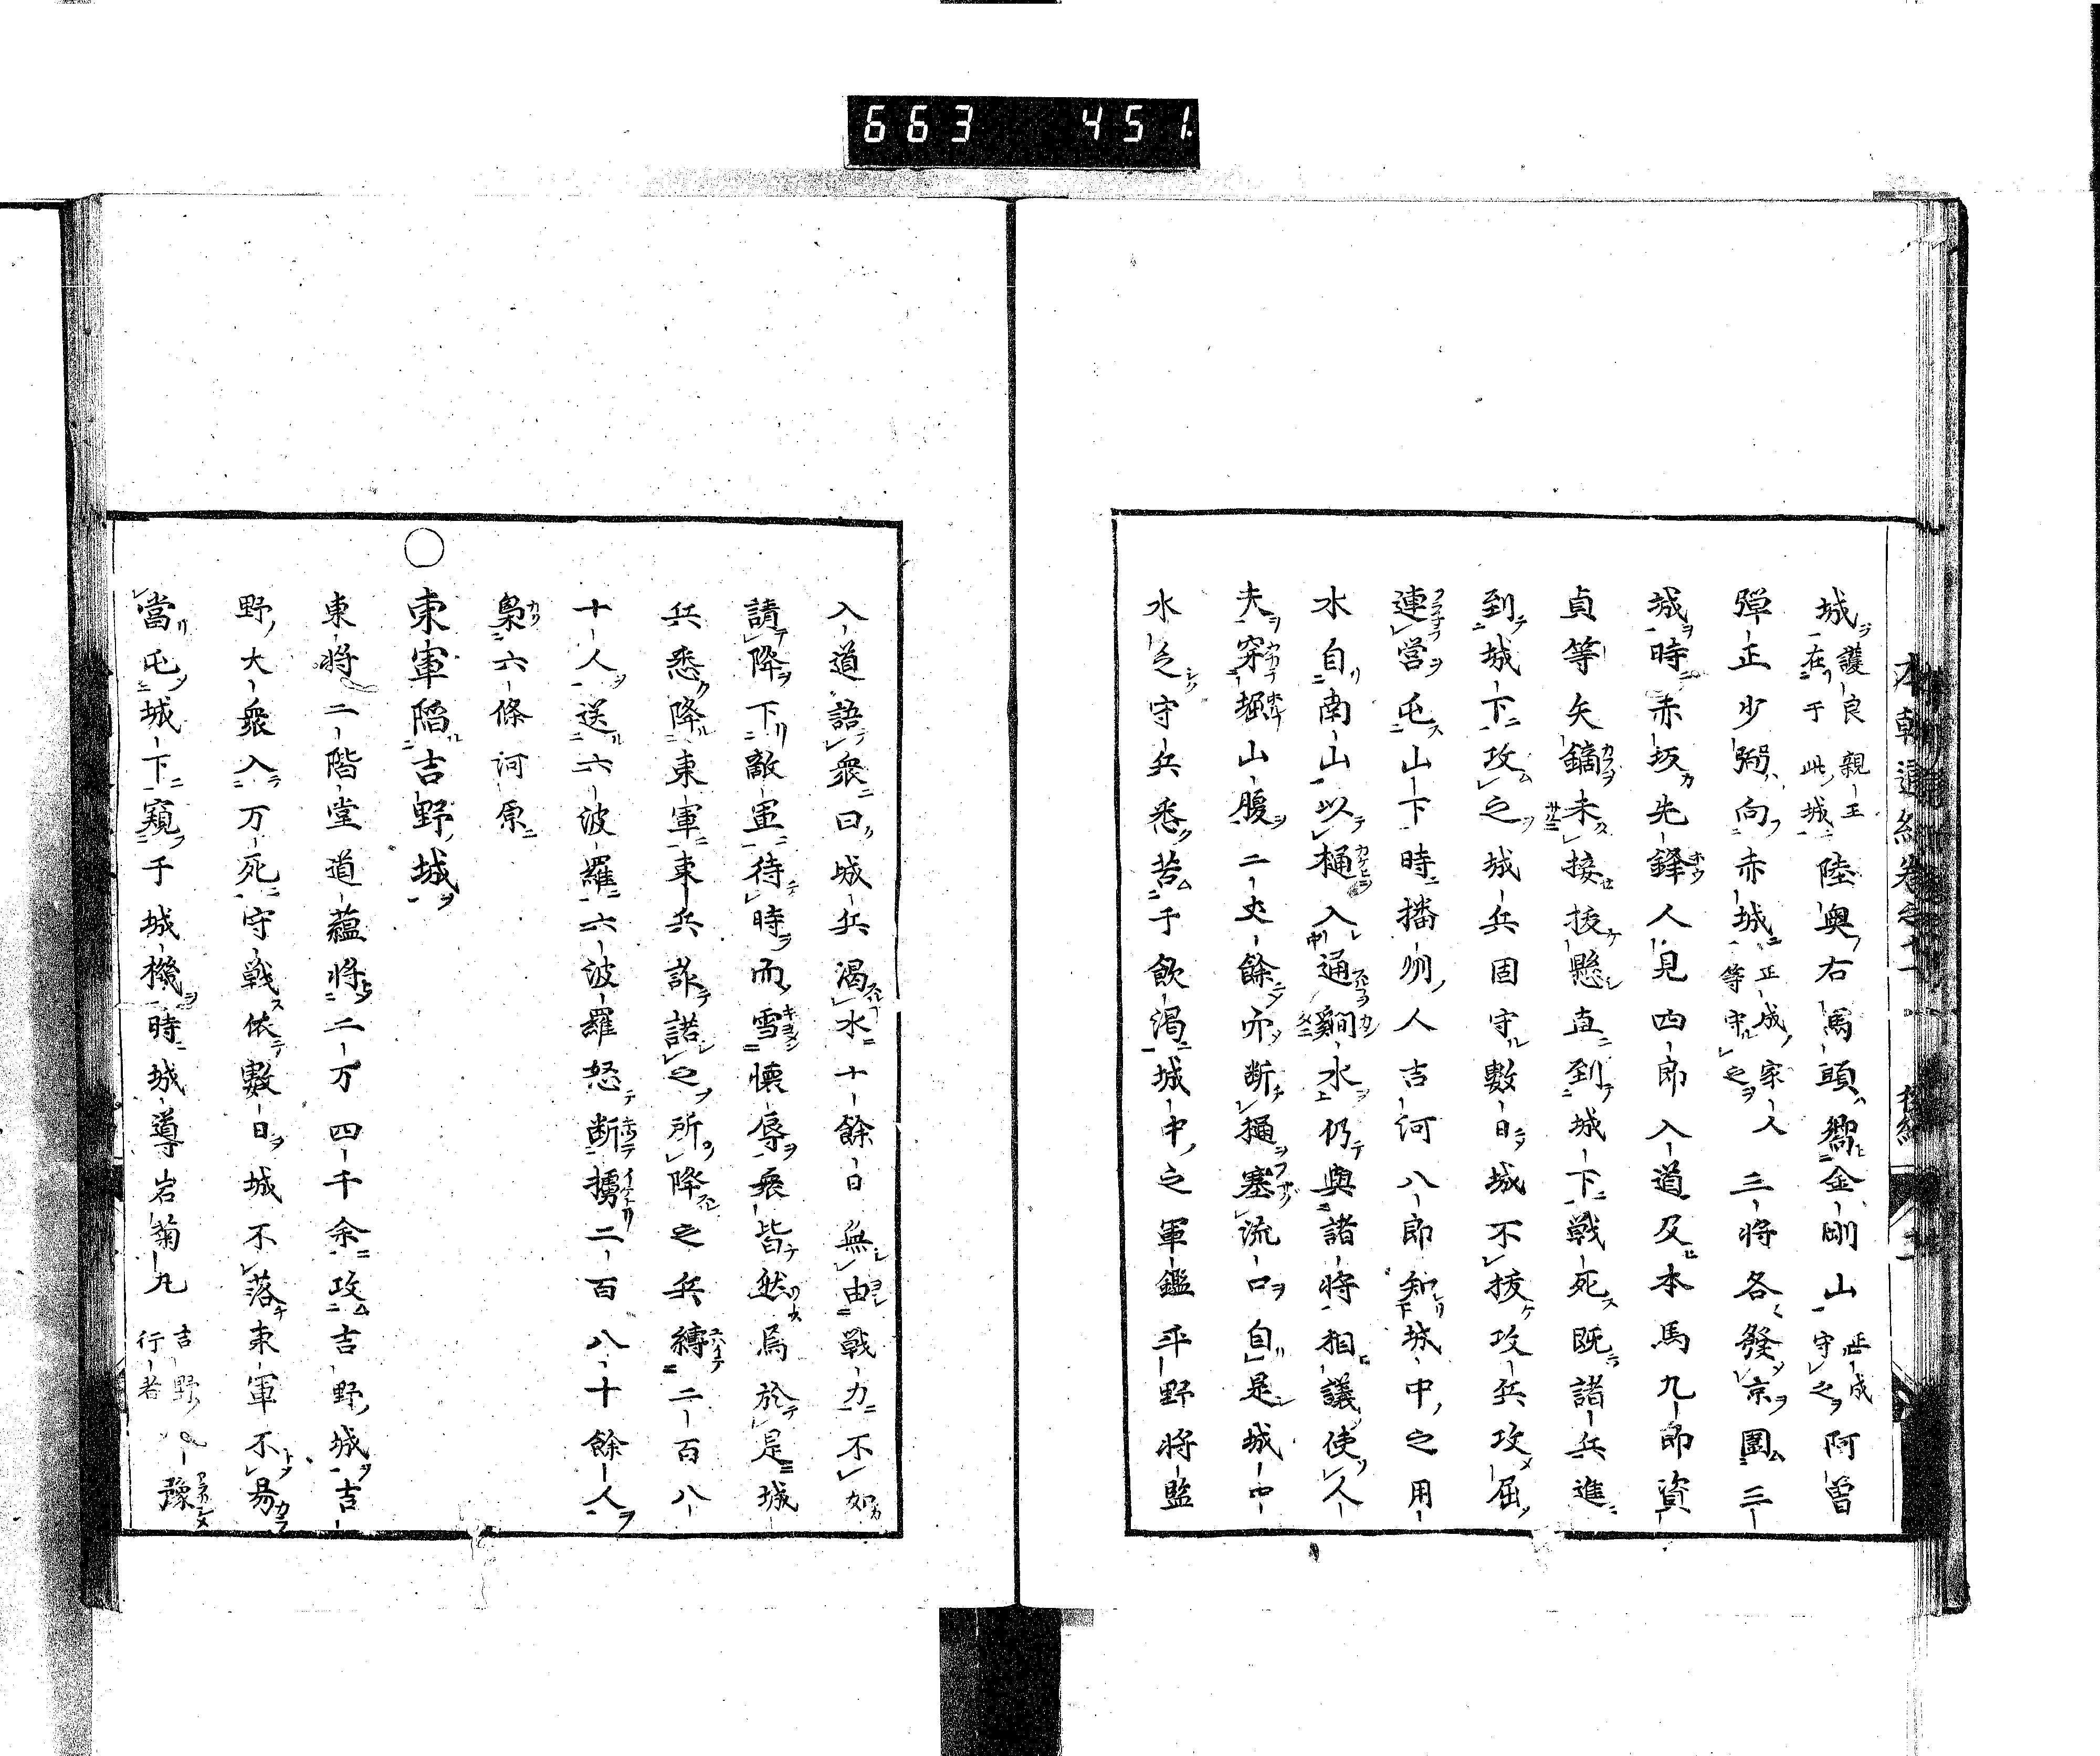 663 451
城護良親王在于此城陸奥右馬頭嚮金剛山正成守之阿曽
弾正少弼向赤城正成家人等守之三将各發京圍三
城時赤坂先鋒人見四郎入道及本馬九郎資
貞等矢鏑未接抜懸直到城下戦死既諸兵進
到城下攻之城兵固守數日城不抜攻兵攻屈
連營屯山下時播州人吉河八郎知城中之用
水自南山以樋入通澗水仍與諸将相議使人
夫穿堀山腹二丈餘而断樋塞流口自是城中
水乏守兵悉苦于飲渇城中之軍鑑平野将監
入道語衆曰城兵渇水十餘日無由戰力不如
請降下敵軍待時而雪懐辱衆皆然焉於是城
兵悉降東軍東兵詐諾之所降之兵縛二百八
十人送六波羅六波羅怒断擄二百八十餘人
梟六條河原
○東軍陥吉野城
東将二階堂道蘊将二万四千余攻吉野城吉
野大衆入万死守戦依數日城不落東軍不易
當屯城下窺于城機時城導岩菊丸吉野行者豫